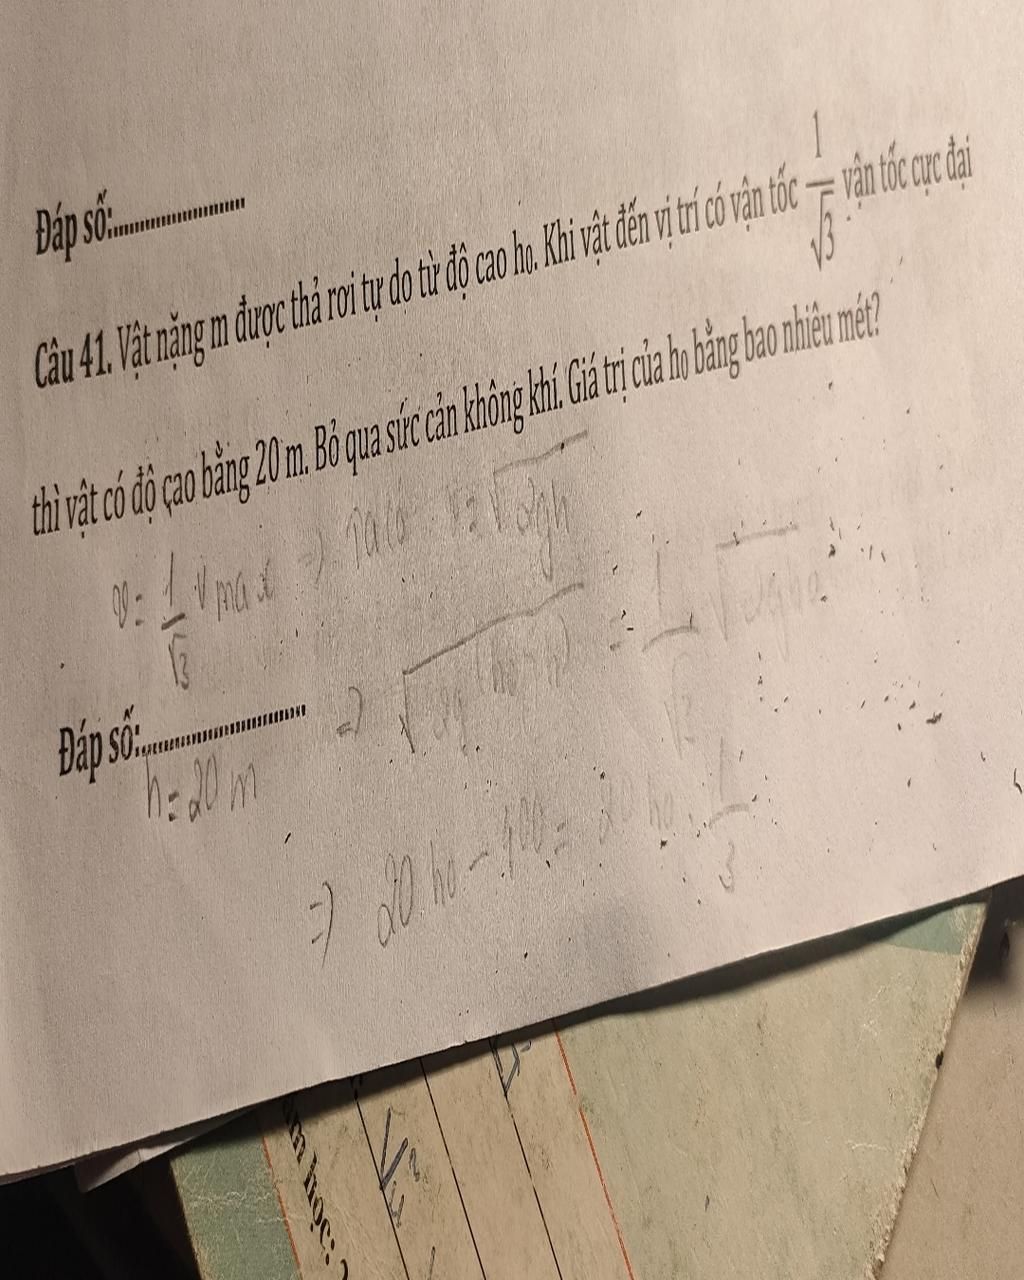 Đáp số:........................
Câu 41. Vật nặng m được thả rơi tự do từ độ cao h₀. Khi vật đến vị trí có vận tốc 1/√3 vận tốc cực đại
thì vật có độ cao bằng 20 m. Bỏ qua sức cản không khí. Giá trị của h₀ bằng bao nhiêu mét?
v = 1/√3 v max => Ta có v = √2gh
=> √2g(h₀-h) = 1/√3 √2gh₀
Đáp số:........................
h = 20 m
=> 20 h₀ - 400 = 20 h₀ . 1/3